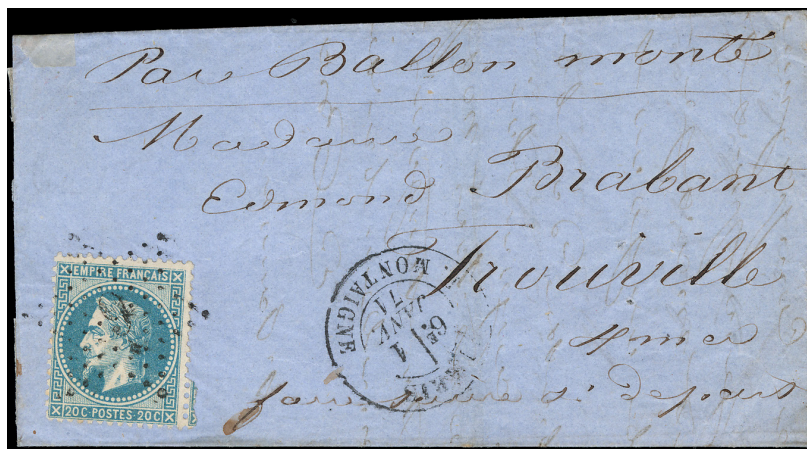 Par Ballon monté
Madame
Edmond Brabant
Trouville
faire suivre si départ
EMPIRE FRANÇAIS
20 C·POSTES·20 C
PARIS
MONTAIGNE
6E
1
JANV
71